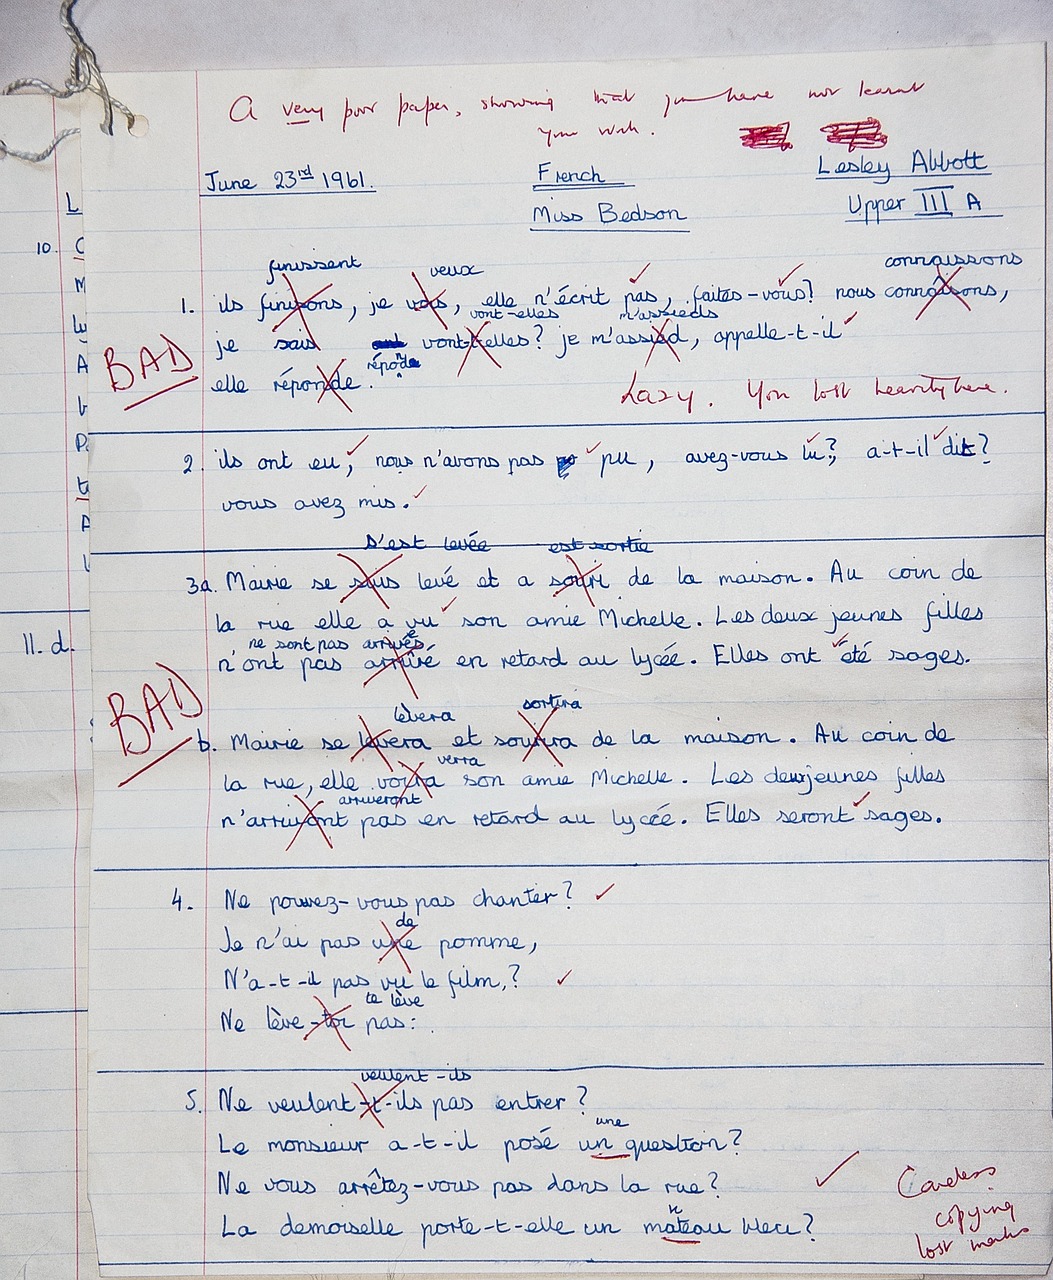 A very poor paper, showing that you have not learnt
your work.
June 23rd 1961.
French
Lesley Abbott
Miss Bedson
Upper III A
L
10. C
M
A
P
A
11. d.
finissent veux connaissons
1. ils finisons, je vois, elle n'écrit pas, faites-vous? nous connaisons,
vont-elles m'assieds
BAD
je sais vont-t-elles? je m'assied, appelle-t-il
réponde
elle réponde.
Lazy. You lost heavily here.
2. ils ont eu, nous n'avons pas pu, avez-vous lu?, a-t-il dit?
vous avez mis.
s'est levée est sortie
3a. Mairie se suis levé et a souri de la maison. Au coin de
la rue elle a vu son amie Michelle. Les deux jeunes filles
ne sont pas arrivées
n'ont pas arrivé en retard au lycée. Elles ont été sages.
BAD
lèvera sortira
b. Mairie se levera et sourira de la maison. Au coin de
verra
la rue, elle voira son amie Michelle. Les deux jeunes filles
arriveront
n'arrivont pas en retard au lycée. Elles seront sages.
4. Ne pouvez-vous pas chanter?
de
Je n'ai pas une pomme,
N'a-t-il pas vu le film,?
te lève
Ne lève-toi pas:
veulent-ils
5. Ne veulent-t-ils pas entrer?
une
Le monsieur a-t-il posé un question?
Ne vous arrêtez-vous pas dans la rue?
n
La demoiselle porte-t-elle un mateau bleu?
Careless
copying
lost marks